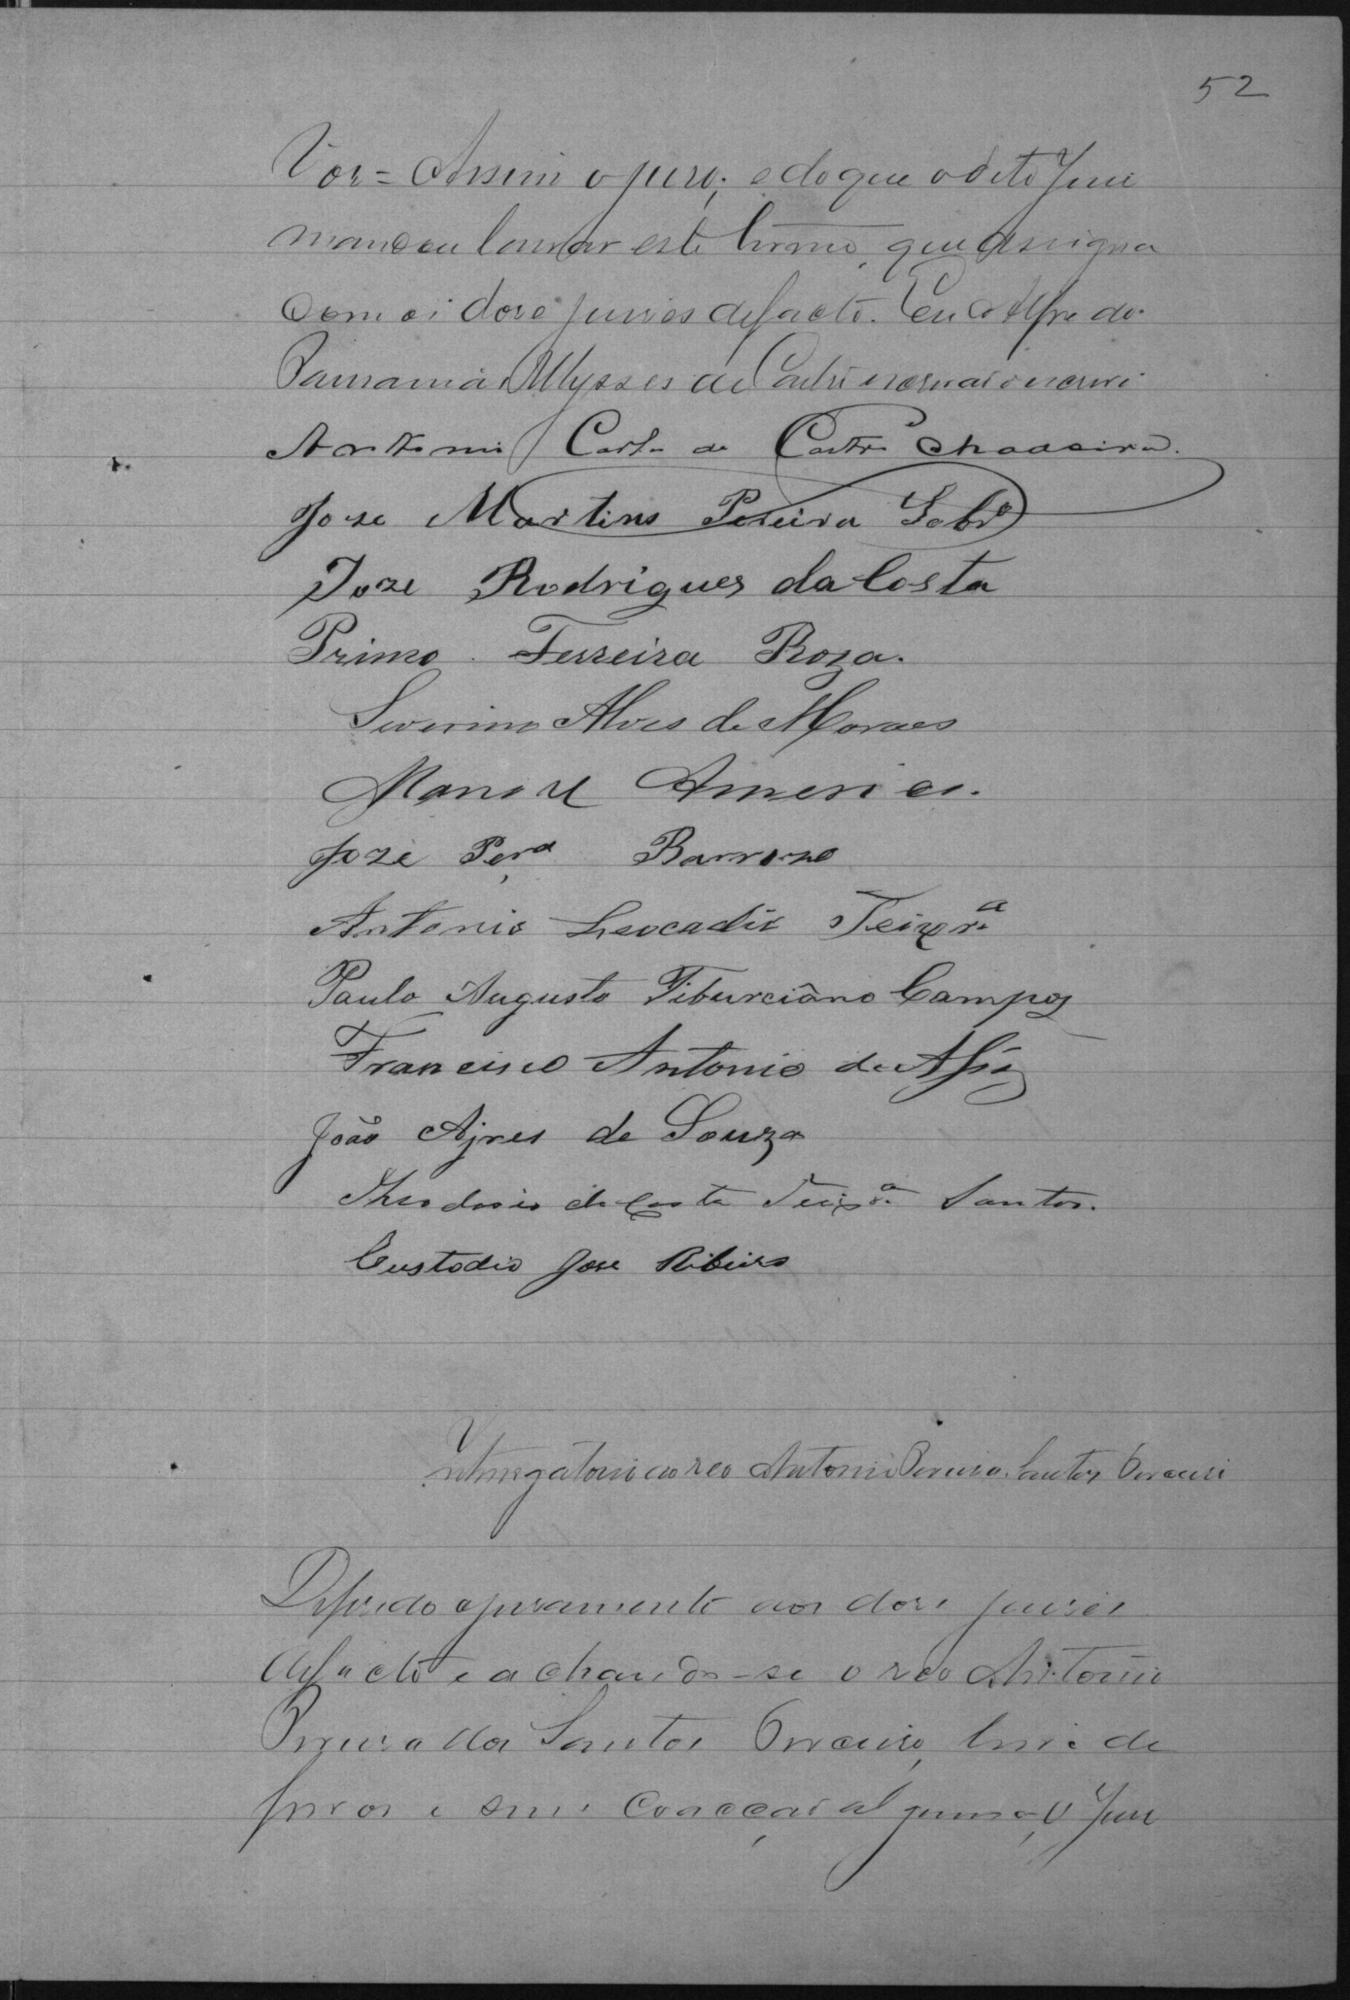 52
Vor = Assim o juro; e do que o dito Juiz
mandou lavrar este termo, que assigna
com os doze juises de facto. Eu Alfredo
Ulysses de Castro escrivão escrevi
Antonio Costa de Castro
Jose Martins Pereira Sobrº
Joze Rodrigues da Costa
Primo Ferreira Roza.
Severino Alves de Moraes
Manoel Americo.
Joze Perª Barrozo
Antonio Leocadio Teixrª
Paulo Augusto Tiburciano Campos
Francisco Antonio de Assiz
João Ajres de Souza
Theodosio da Costa Teixrª Santos.
Custodio Jose Ribeiro
Interrogatorio ao reo Antonio Pereira Santos
Deferido o juramento aos doze juises
de facto e achando-se o reo Antonio
Pereira dos Santos livre de
ferros e sem coacção alguma, o Juiz